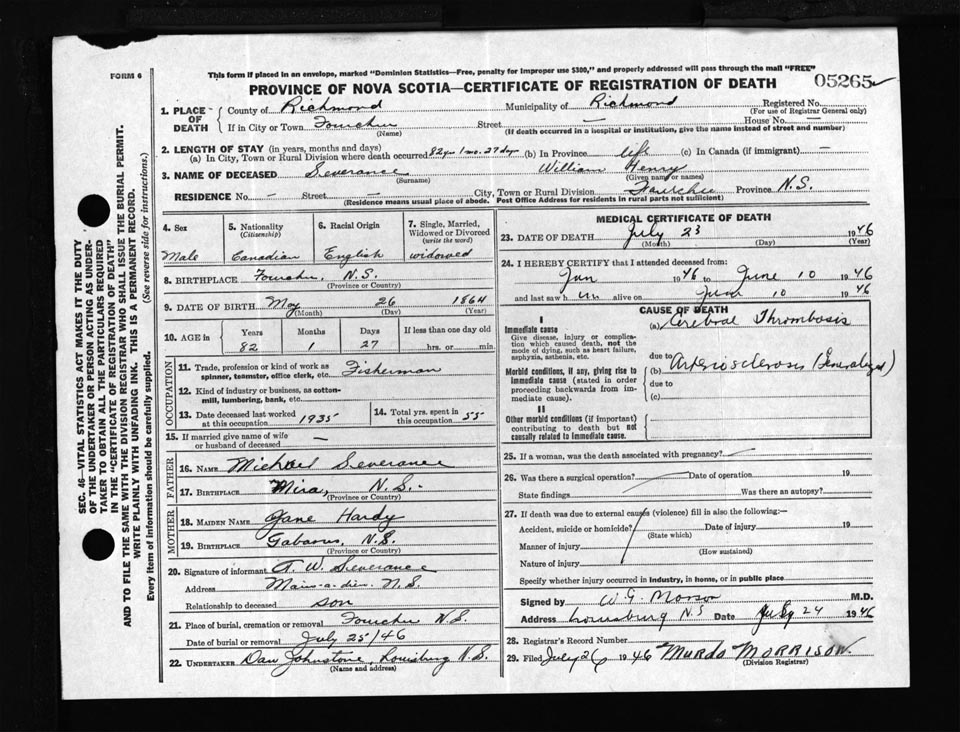 FORM 6
This form if placed in an envelope, marked "Dominion Statistics—Free, penalty for improper use $300," and properly addressed will pass through the mail "FREE"
PROVINCE OF NOVA SCOTIA—CERTIFICATE OF REGISTRATION OF DEATH 05265
1. PLACE OF DEATH County of Richmond Municipality of Richmond Registered No.
(For use of Registrar General only)
If in City or Town Fourchu Street — House No. —
(Name) (If death occurred in a hospital or institution, give the name instead of street and number)
2. LENGTH OF STAY (in years, months and days)
(a) In City, Town or Rural Division where death occurred 82 yrs 1 mo. 27 days (b) In Province life (c) In Canada (if immigrant) —
3. NAME OF DECEASED Severance William Henry
(Surname) (Given name or names)
RESIDENCE No. — Street City, Town or Rural Division Fourchu Province N.S.
(Residence means usual place of abode. Post Office Address for residents in rural parts not sufficient)
4. Sex
Male
5. Nationality
(Citizenship)
Canadian
6. Racial Origin
English
7. Single, Married,
Widowed or Divorced
(write the word)
widowed
8. BIRTHPLACE Fourchu, N.S.
(Province or Country)
9. DATE OF BIRTH May 26 1864
(Month) (Day) (Year)
10. AGE in Years Months Days If less than one day old
82 1 27 hrs. or min.
OCCUPATION
11. Trade, profession or kind of work as Fisherman
spinner, teamster, office clerk, etc.
12. Kind of industry or business, as cotton-
mill, lumbering, bank, etc.
13. Date deceased last worked
at this occupation 1935
14. Total yrs. spent in
this occupation 55
15. If married give name of wife
or husband of deceased —
FATHER
16. NAME Michael Severance
17. BIRTHPLACE Mira, N.S.
(Province or Country)
MOTHER
18. MAIDEN NAME Jane Hardy
19. BIRTHPLACE Gabarus, N.S.
(Province or Country)
20. Signature of informant A. W. Severance
Address Main-a-dieu N.S.
Relationship to deceased son
21. Place of burial, cremation or removal Fourchu N.S.
Date of burial or removal July 25/46
22. UNDERTAKER Dan Johnstone, Louisburg N.S.
(Name and address)
MEDICAL CERTIFICATE OF DEATH
23. DATE OF DEATH July 23 1946
(Month) (Day) (Year)
24. I HEREBY CERTIFY that I attended deceased from:
Jan 1946 to June 10 1946
and last saw him alive on June 10 1946
CAUSE OF DEATH
I
Immediate cause
Give disease, injury or complica-
tion which caused death, not the
mode of dying, such as heart failure,
asphyxia, asthenia, etc.
(a) Cerebral Thrombosis
due to
Morbid conditions, if any, giving rise to
immediate cause (stated in order
proceeding backwards from im-
mediate cause).
(b) Arteriosclerosis (Generalized)
due to
(c)
II
Other morbid conditions (if important)
contributing to death but not
causally related to immediate cause.
25. If a woman, was the death associated with pregnancy?
26. Was there a surgical operation? Date of operation 19
State findings Was there an autopsy?
27. If death was due to external causes (violence) fill in also the following:—
Accident, suicide or homicide? Date of injury 19
(State which)
Manner of injury
(How sustained)
Nature of injury
Specify whether injury occurred in industry, in home, or in public place
Signed by W. G. Morson M.D.
Address Louisburg N.S Date July 24 1946
28. Registrar's Record Number
29. Filed July 26 1946 Murdo MORRISON.
(Division Registrar)
SEC. 46—VITAL STATISTICS ACT MAKES IT THE DUTY
OF THE UNDERTAKER OR PERSON ACTING AS UNDER-
TAKER TO OBTAIN ALL THE PARTICULARS REQUIRED
IN THE "CERTIFICATE OF REGISTRATION OF DEATH"
AND TO FILE THE SAME WITH THE DIVISION REGISTRAR WHO SHALL ISSUE THE BURIAL PERMIT.
WRITE PLAINLY WITH UNFADING INK. THIS IS A PERMANENT RECORD.
Every item of information should be carefully supplied. (See reverse side for instructions.)